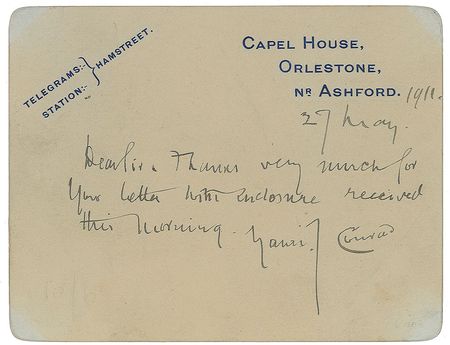 TELEGRAMS:-
STATION:-
HAMSTREET.
CAPEL HOUSE,
ORLESTONE,
NR ASHFORD. 1911.
27 May.
Dear Sir. Thanks very much for
your letter with enclosure received
this morning. Yours J Conrad